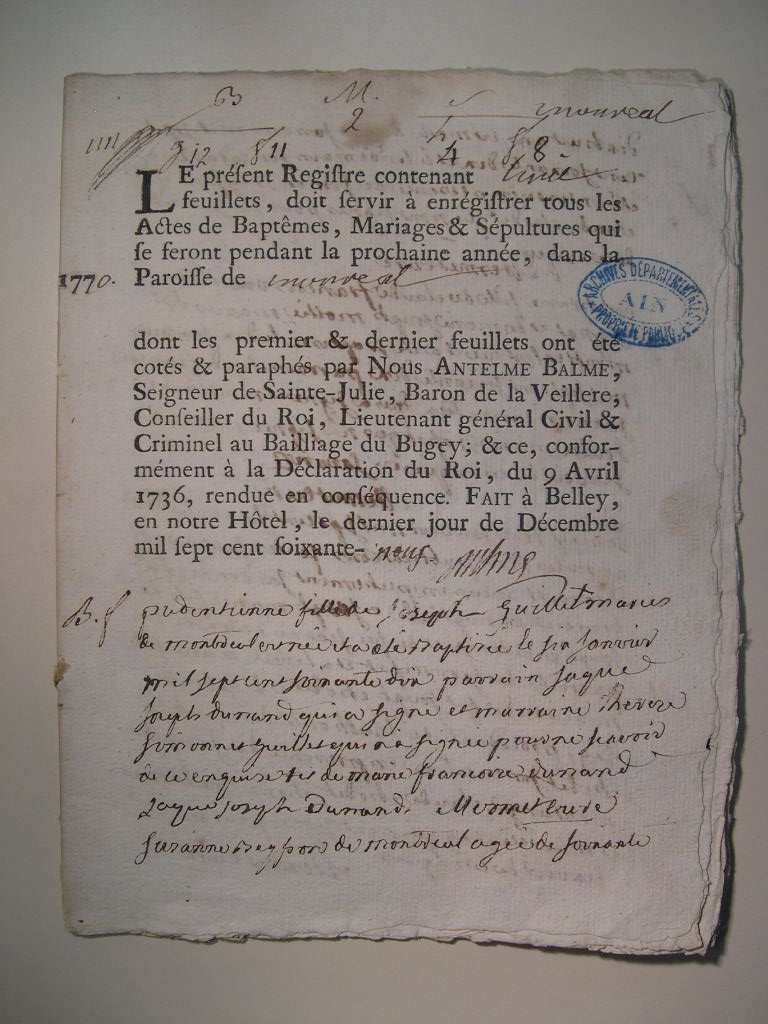 B M. S monreal
2
g 12 f 11 4 f 8
LE préſent Regiſtre contenant huit
feuillets, doit ſervir à enrégiſtrer tous les
Actes de Baptêmes, Mariages & Sépultures qui
ſe feront pendant la prochaine année, dans la
1770. Paroiſſe de monreal
ARCHIVES DÉPARTEMENTALES
AIN
PROPRIÉTÉ PUBLIQUE
dont les premier & dernier feuillets ont été
cotés & paraphés par Nous ANTELME BALME,
Seigneur de Sainte-Julie, Baron de la Veillere,
Conſeiller du Roi, Lieutenant général Civil &
Criminel au Bailliage du Bugey; & ce, confor-
mément à la Déclaration du Roi, du 9 Avril
1736, rendue en conſéquence. FAIT à Belley,
en notre Hôtel, le dernier jour de Décembre
mil ſept cent ſoixante- neuf.
B. f pudentienne fille de Joseph Guillet maries
de montreal est née et a été Baptisée le six Janvier
mil sept cent soixante dix parrain Jaque
Joseph dunand qui a signé et marraine
Guillet qui n'a signée pour ne scavoir
de ce enquise et de marie francoise dunand
Jaque Joseph Dunand.
Suzanne de montreal agée de soixante